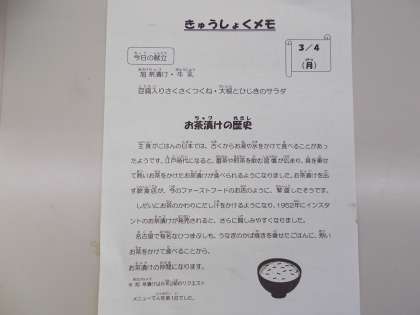 きゅうしょくメモ
3／4
(月)
今日の献立
鮭茶漬け・牛乳
豆腐入りさくさくつくね・大根とひじきのサラダ
お茶漬けの歴史
主食がごはんの日本では、古くからお湯や水をかけて食べることがあっ
たようです。江戸時代になると、番茶や煎茶を飲む習慣が広まり、具を乗せ
て熱いお茶をかけたお茶漬けが食べられるようになりました。お茶漬けを出
す飲食店が、今のファーストフードのお店のように、繁盛したそうです。
しだいにお茶のかわりにだし汁をかけるようになり、1952年にインスタ
ントのお茶漬けが発売されると、さらに親しみやすくなりました。
名古屋で有名なひつまぶしも、うなぎのかば焼きを乗せたごはんに、熱い
お茶をかけて食べることから、
お茶漬けの仲間になります。
茶漬けは6年2組のリクエスト
メニューで人気第1位でした。